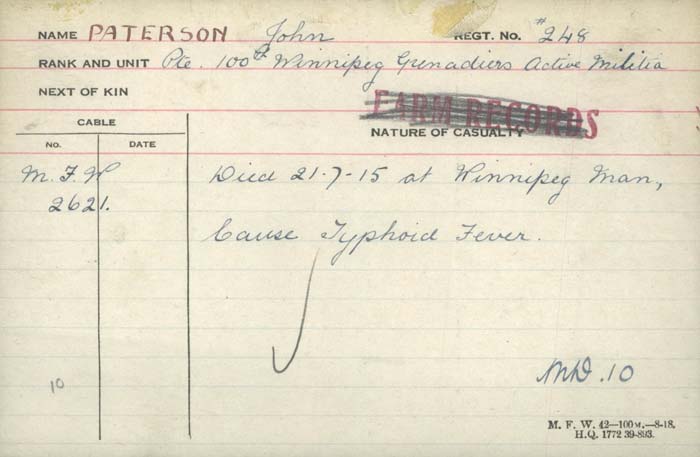 NAME PATERSON John REGT. No. #248
RANK AND UNIT Pte. 100th Winnipeg Grenadiers Active Militia
NEXT OF KIN
FARM RECORDS
CABLE NATURE OF CASUALTY
No. DATE
M.F.W Died 21-7-15 at Winnipeg Man,
2621.
Cause Typhoid Fever.
10 MD.10
M. F. W. 42—100M.—8-18.
H.Q. 1772 39-893.